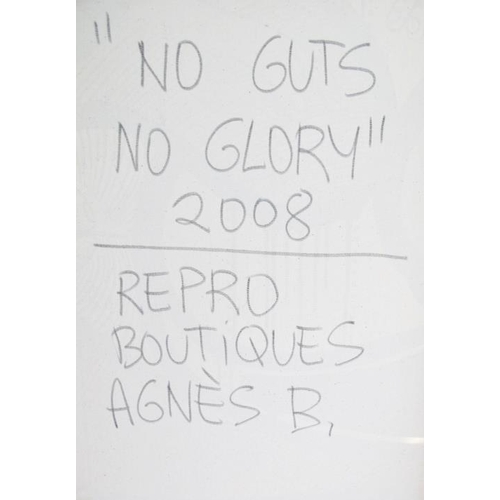 "NO GUTS
NO GLORY"
2008
REPRO
BOUTiQUES
AGNÈS B,